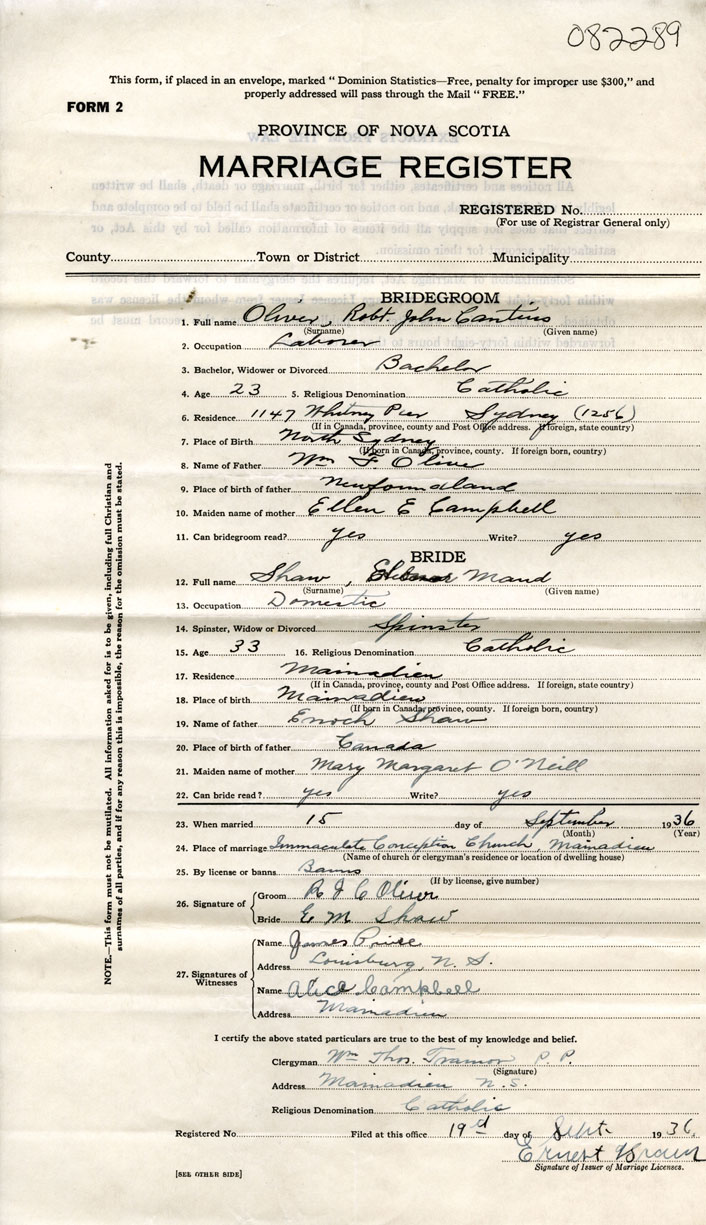 082289
This form, if placed in an envelope, marked " Dominion Statistics—Free, penalty for improper use $300," and
properly addressed will pass through the Mail " FREE."
FORM 2
PROVINCE OF NOVA SCOTIA
MARRIAGE REGISTER
REGISTERED No.
(For use of Registrar General only)
County Town or District Municipality
BRIDEGROOM
1. Full name Oliver, Robt. John Cantius
(Surname) (Given name)
2. Occupation Laborer
3. Bachelor, Widower or Divorced Bachelor
4. Age 23 5. Religious Denomination Catholic
6. Residence 1147 Whitney Pier Sydney (1256)
(If in Canada, province, county and Post Office address. If foreign, state country)
7. Place of Birth North Sydney
(If born in Canada, province, county. If foreign born, country)
8. Name of Father Wm F Oliver
9. Place of birth of father Newfoundland
10. Maiden name of mother Ellen E Campbell
11. Can bridegroom read? yes Write? yes
BRIDE
12. Full name Shaw, Maud
(Surname) (Given name)
13. Occupation Domestic
14. Spinster, Widow or Divorced Spinster
15. Age 33 16. Religious Denomination Catholic
17. Residence Mainadieu
(If in Canada, province, county and Post Office address. If foreign, state country)
18. Place of birth Mainadieu
(If born in Canada, province, county. If foreign born, country)
19. Name of father Enoch Shaw
20. Place of birth of father Canada
21. Maiden name of mother Mary Margaret O'Neill
22. Can bride read? yes Write? yes
23. When married 15 day of September 1936
(Month) (Year)
24. Place of marriage Immaculate Conception Church, Mainadieu
(Name of church or clergyman's residence or location of dwelling house)
25. By license or banns Banns
(If by license, give number)
26. Signature of Groom R J C Oliver
Bride E M Shaw
27. Signatures of Witnesses Name James Price
Address Louisburg, N. S.
Name Alice Campbell
Address Mainadieu
I certify the above stated particulars are true to the best of my knowledge and belief.
Clergyman Wm Thos. P. P.
(Signature)
Address Mainadieu N. S.
Religious Denomination Catholic
Registered No. Filed at this office 19 d day of Sept. 1936.
Ernest
Signature of Issuer of Marriage Licenses.
[SEE OTHER SIDE]
NOTE.—This form must not be mutilated. All information asked for is to be given, including full Christian and
surnames of all parties, and if for any reason this is impossible, the reason for the omission must be stated.